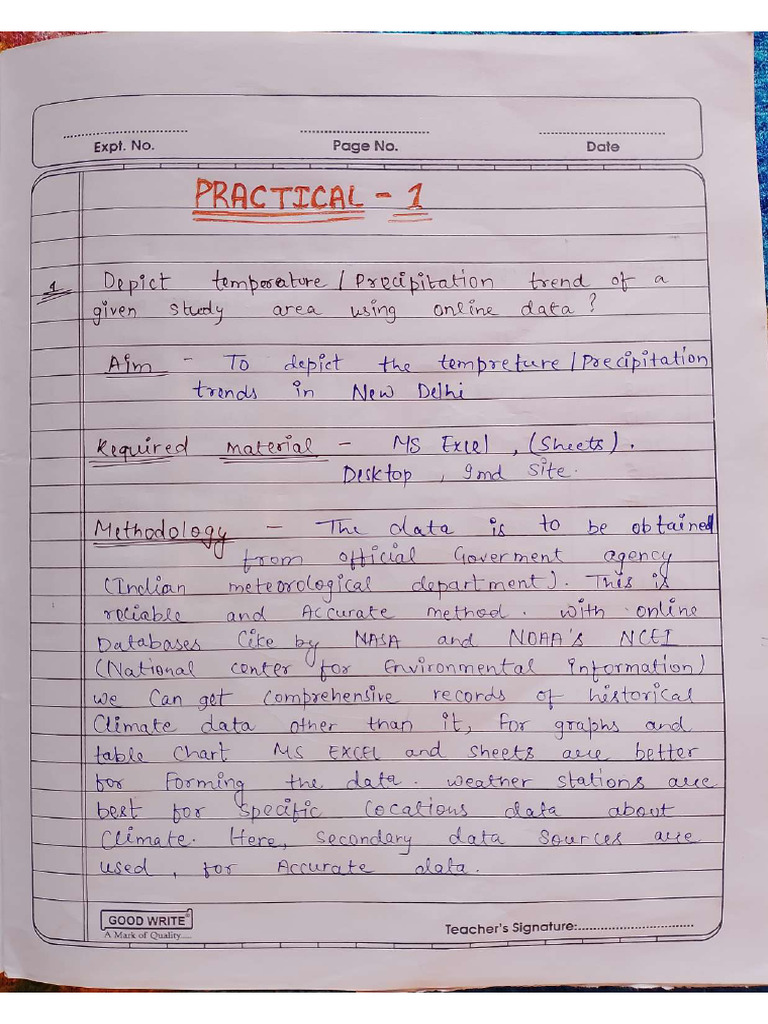 Expt. No.
Page No.
Date
PRACTICAL - 1
1 Depict temperature / Precipitation trend of a
given study area using online data ?
Aim - To depict the tempreture / Precipitation
trends in New Delhi
Required material - MS Excel , (Sheets) .
Desktop , gmd site.
Methodology - The data is to be obtained
from official Goverment agency
(Indian meteorological department). This is
reliable and Accurate method. with online
Databases like by NASA and NOAA's NCEI
(National center for Environmental Information)
we can get comprehensive records of historical
Climate data other than it, for graphs and
table chart MS EXCEL and sheets are better
for forming the data. weather stations are
best for specific locations data about
climate. Here, secondary data sources are
used , for Accurate data.
GOOD WRITE
A Mark of Quality.....
Teacher's Signature: